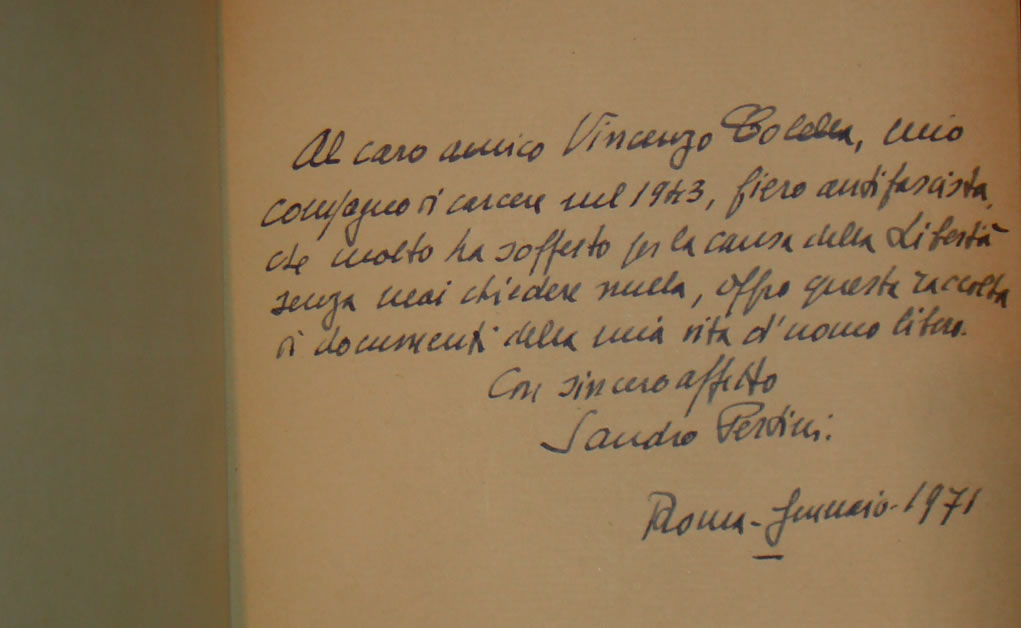 Al caro amico Vincenzo Colella, mio
compagno di carcere nel 1943, fiero antifascista,
che molto ha sofferto per la causa della Libertà
senza mai chiedere nulla, offro questa raccolta
di documenti della mia vita d'uomo libero.
Con sincero affetto
Sandro Pertini.
Roma - gennaio - 1971